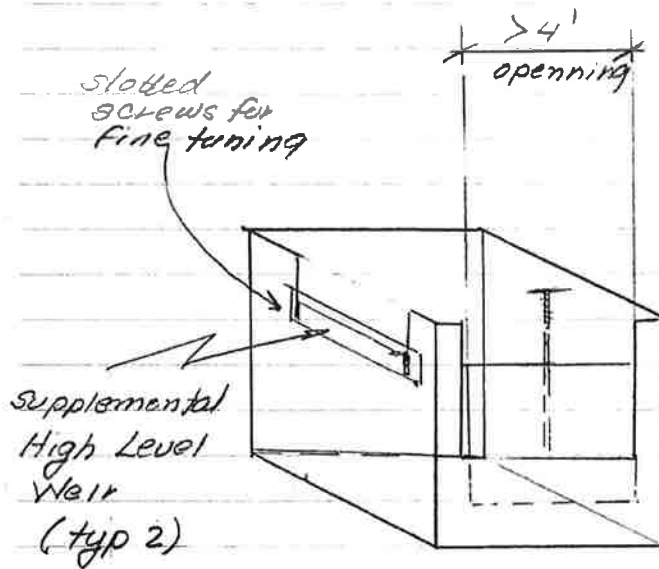 >4'
openning
slotted
screws for
fine tuning
supplemental
High Level
Weir
(typ 2)